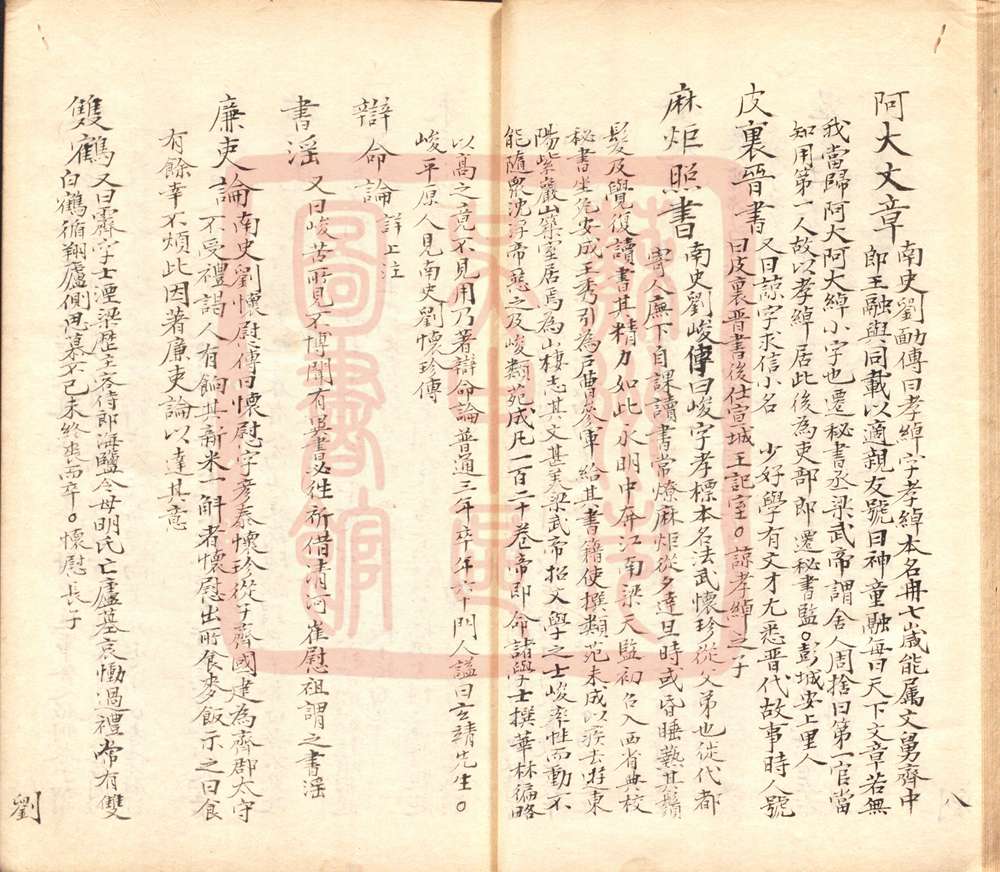 阿大文章
南史劉勔傳曰孝綽字孝綽本名冉七歲能属文舅齊中
郎王融與同載以適親友號曰神童融每曰天下文章若無
我當歸阿大阿大綽小字也遷秘書丞梁武帝謂舍人周捨曰第一官當
知用第一人故以孝綽居此後為吏部郎遷秘書監。彭城安上里人
皮裏晉書
又曰諒字求信小名 少好學有文才尤悉晉代故事時人號
曰皮裏晉書後仕宣城王記室。諒孝綽之子
麻炬照書
南史劉峻傳曰峻字孝標本名法武懷珍從父弟也從代都
寄人廡下自課讀書常燎麻炬從夕達旦時或昏睡爇其鬚
髮及覺復讀書其精力如此永明中奔江南梁天監初召入西省典校
秘書坐免安成王秀引為戶曹參軍給其書籍使撰類苑未成以疾去遊東
陽紫巖山築室居焉為山棲志其文甚美梁武帝招文學之士峻率性而動不
能隨衆沈浮帝惡之及峻類苑成凡一百二十卷帝即命諸學士撰華林徧略
以高之竟不見用乃著辯命論普通三年卒年六十門人謚曰玄靖先生。
峻平原人見南史劉懷珍傳
辯命論 詳上注
書淫 又曰峻苦所見不博聞有異書必徃祈借清河崔慰祖謂之書淫
廉吏論
南史劉懷慰傳曰懷慰字彦泰懷珍從子齊國建為齊郡太守
不受禮謁人有餉其新米一斛者懷慰出所食麥飯示之曰食
有餘幸不煩此因著廉吏論以達其意
雙鶴
又曰霽字士湮梁歴主客侍郎海鹽令母明氏亡廬墓哀慟過禮常有雙
白鶴循翔廬側思慕不已未終喪而卒。懷慰長子
八
劉
蘇州市
天一區
圖書館